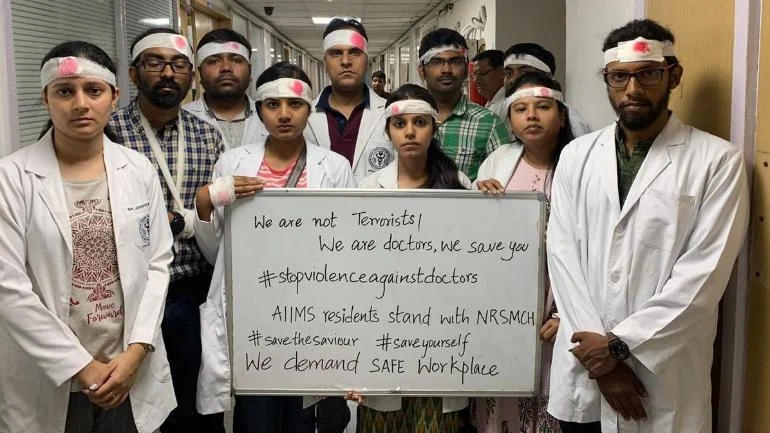 We are not Terrorists!
We are doctors, we save you
#stopviolenceagainstdoctors
AIIMS residents stand with NRSMCH
#savethesaviour #saveyourself
We demand SAFE Workplace
Move
Forward